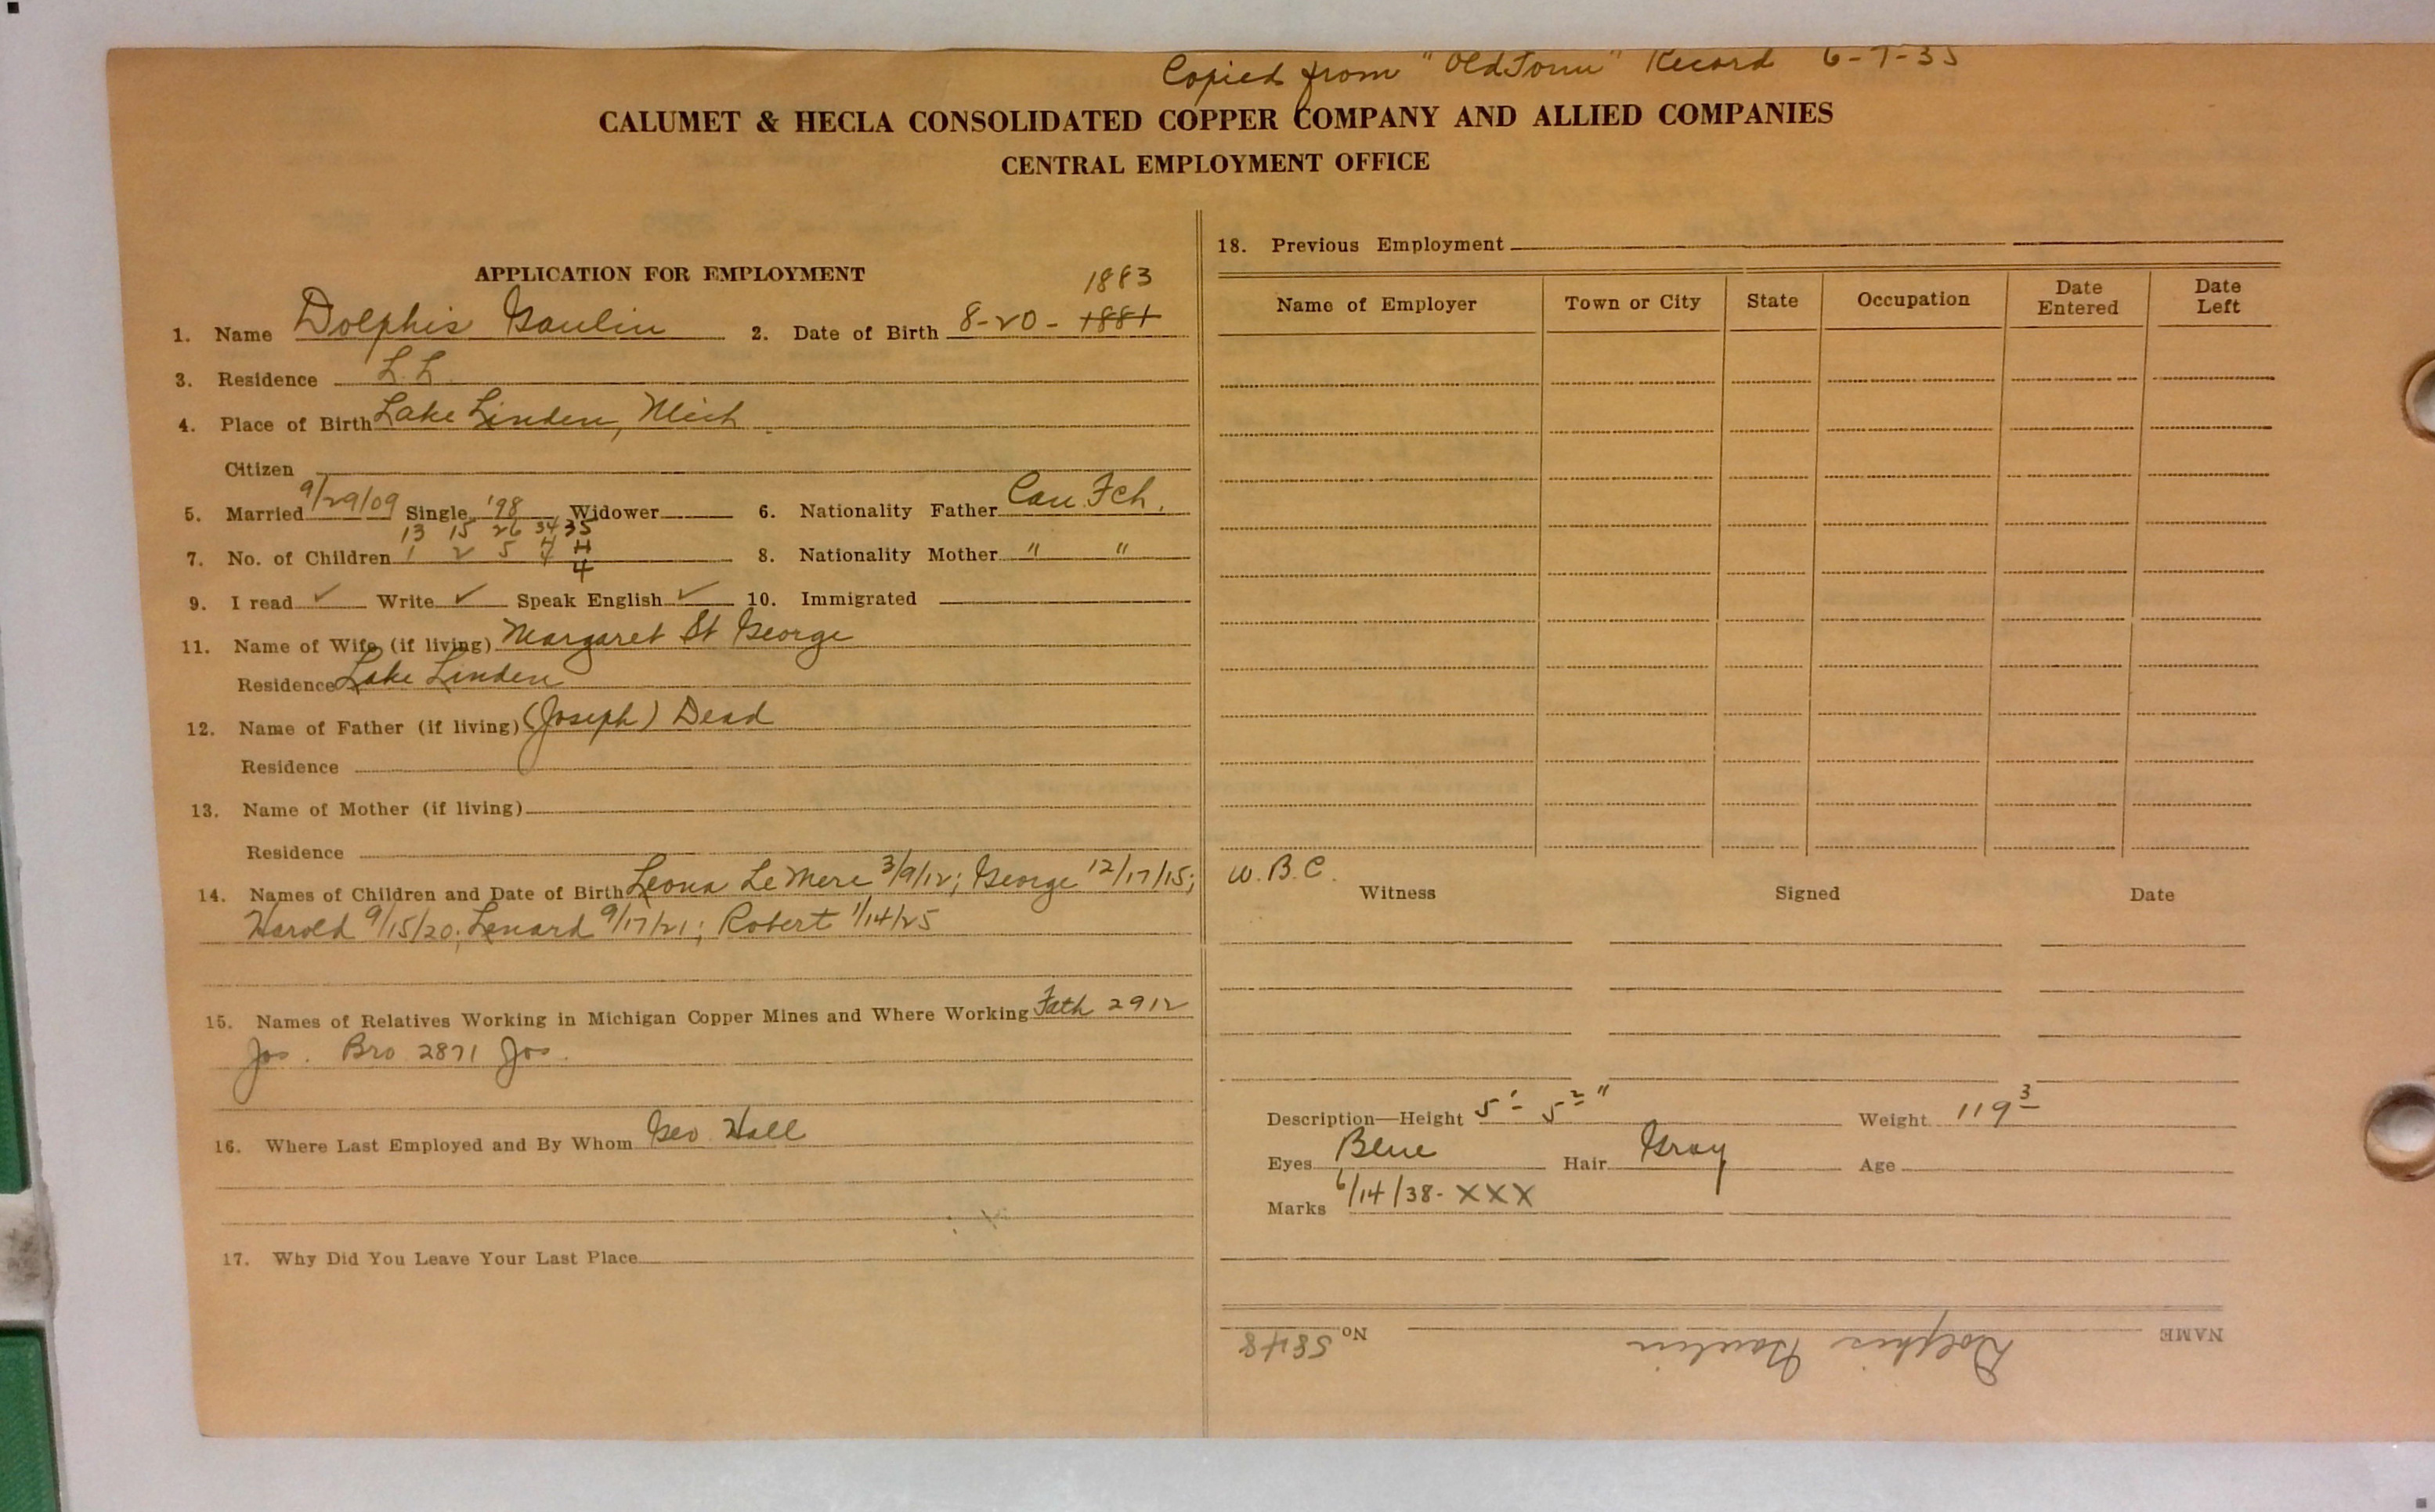 Copied from "Old Form" Record 6-7-35
CALUMET & HECLA CONSOLIDATED COPPER COMPANY AND ALLIED COMPANIES
CENTRAL EMPLOYMENT OFFICE
APPLICATION FOR EMPLOYMENT
1883
1. Name Dolphis Gaulin 2. Date of Birth 8-20-1881
3. Residence L.L.
4. Place of Birth Lake Linden, Mich
Citizen
5. Married 9/29/09 Single '98 Widower
6. Nationality Father Can. Fch.
13 15 26 34 35
7. No. of Children 1 2 5 4 4
4
8. Nationality Mother " "
9. I read ✓ Write ✓ Speak English ✓ 10. Immigrated
11. Name of Wife (if living) Margaret St George
Residence Lake Linden
12. Name of Father (if living) (Joseph) Dead
Residence
13. Name of Mother (if living)
Residence
14. Names of Children and Date of Birth Leona LeMere 3/9/12; George 12/17/15;
Harold 9/15/20; Lenard 9/17/21; Robert 1/14/25
15. Names of Relatives Working in Michigan Copper Mines and Where Working Fath 2912
Jos. Bro 2871 Jos.
16. Where Last Employed and By Whom Geo. Hall
17. Why Did You Leave Your Last Place
18. Previous Employment
Name of Employer Town or City State Occupation Date Entered Date Left
W. B. C.
Witness Signed Date
Description—Height 5' - 5 2/- " Weight 119 3/-
Eyes Blue Hair Gray Age
Marks 6/14/38- XXX
NAME Dolphis Gaulin No. 5848